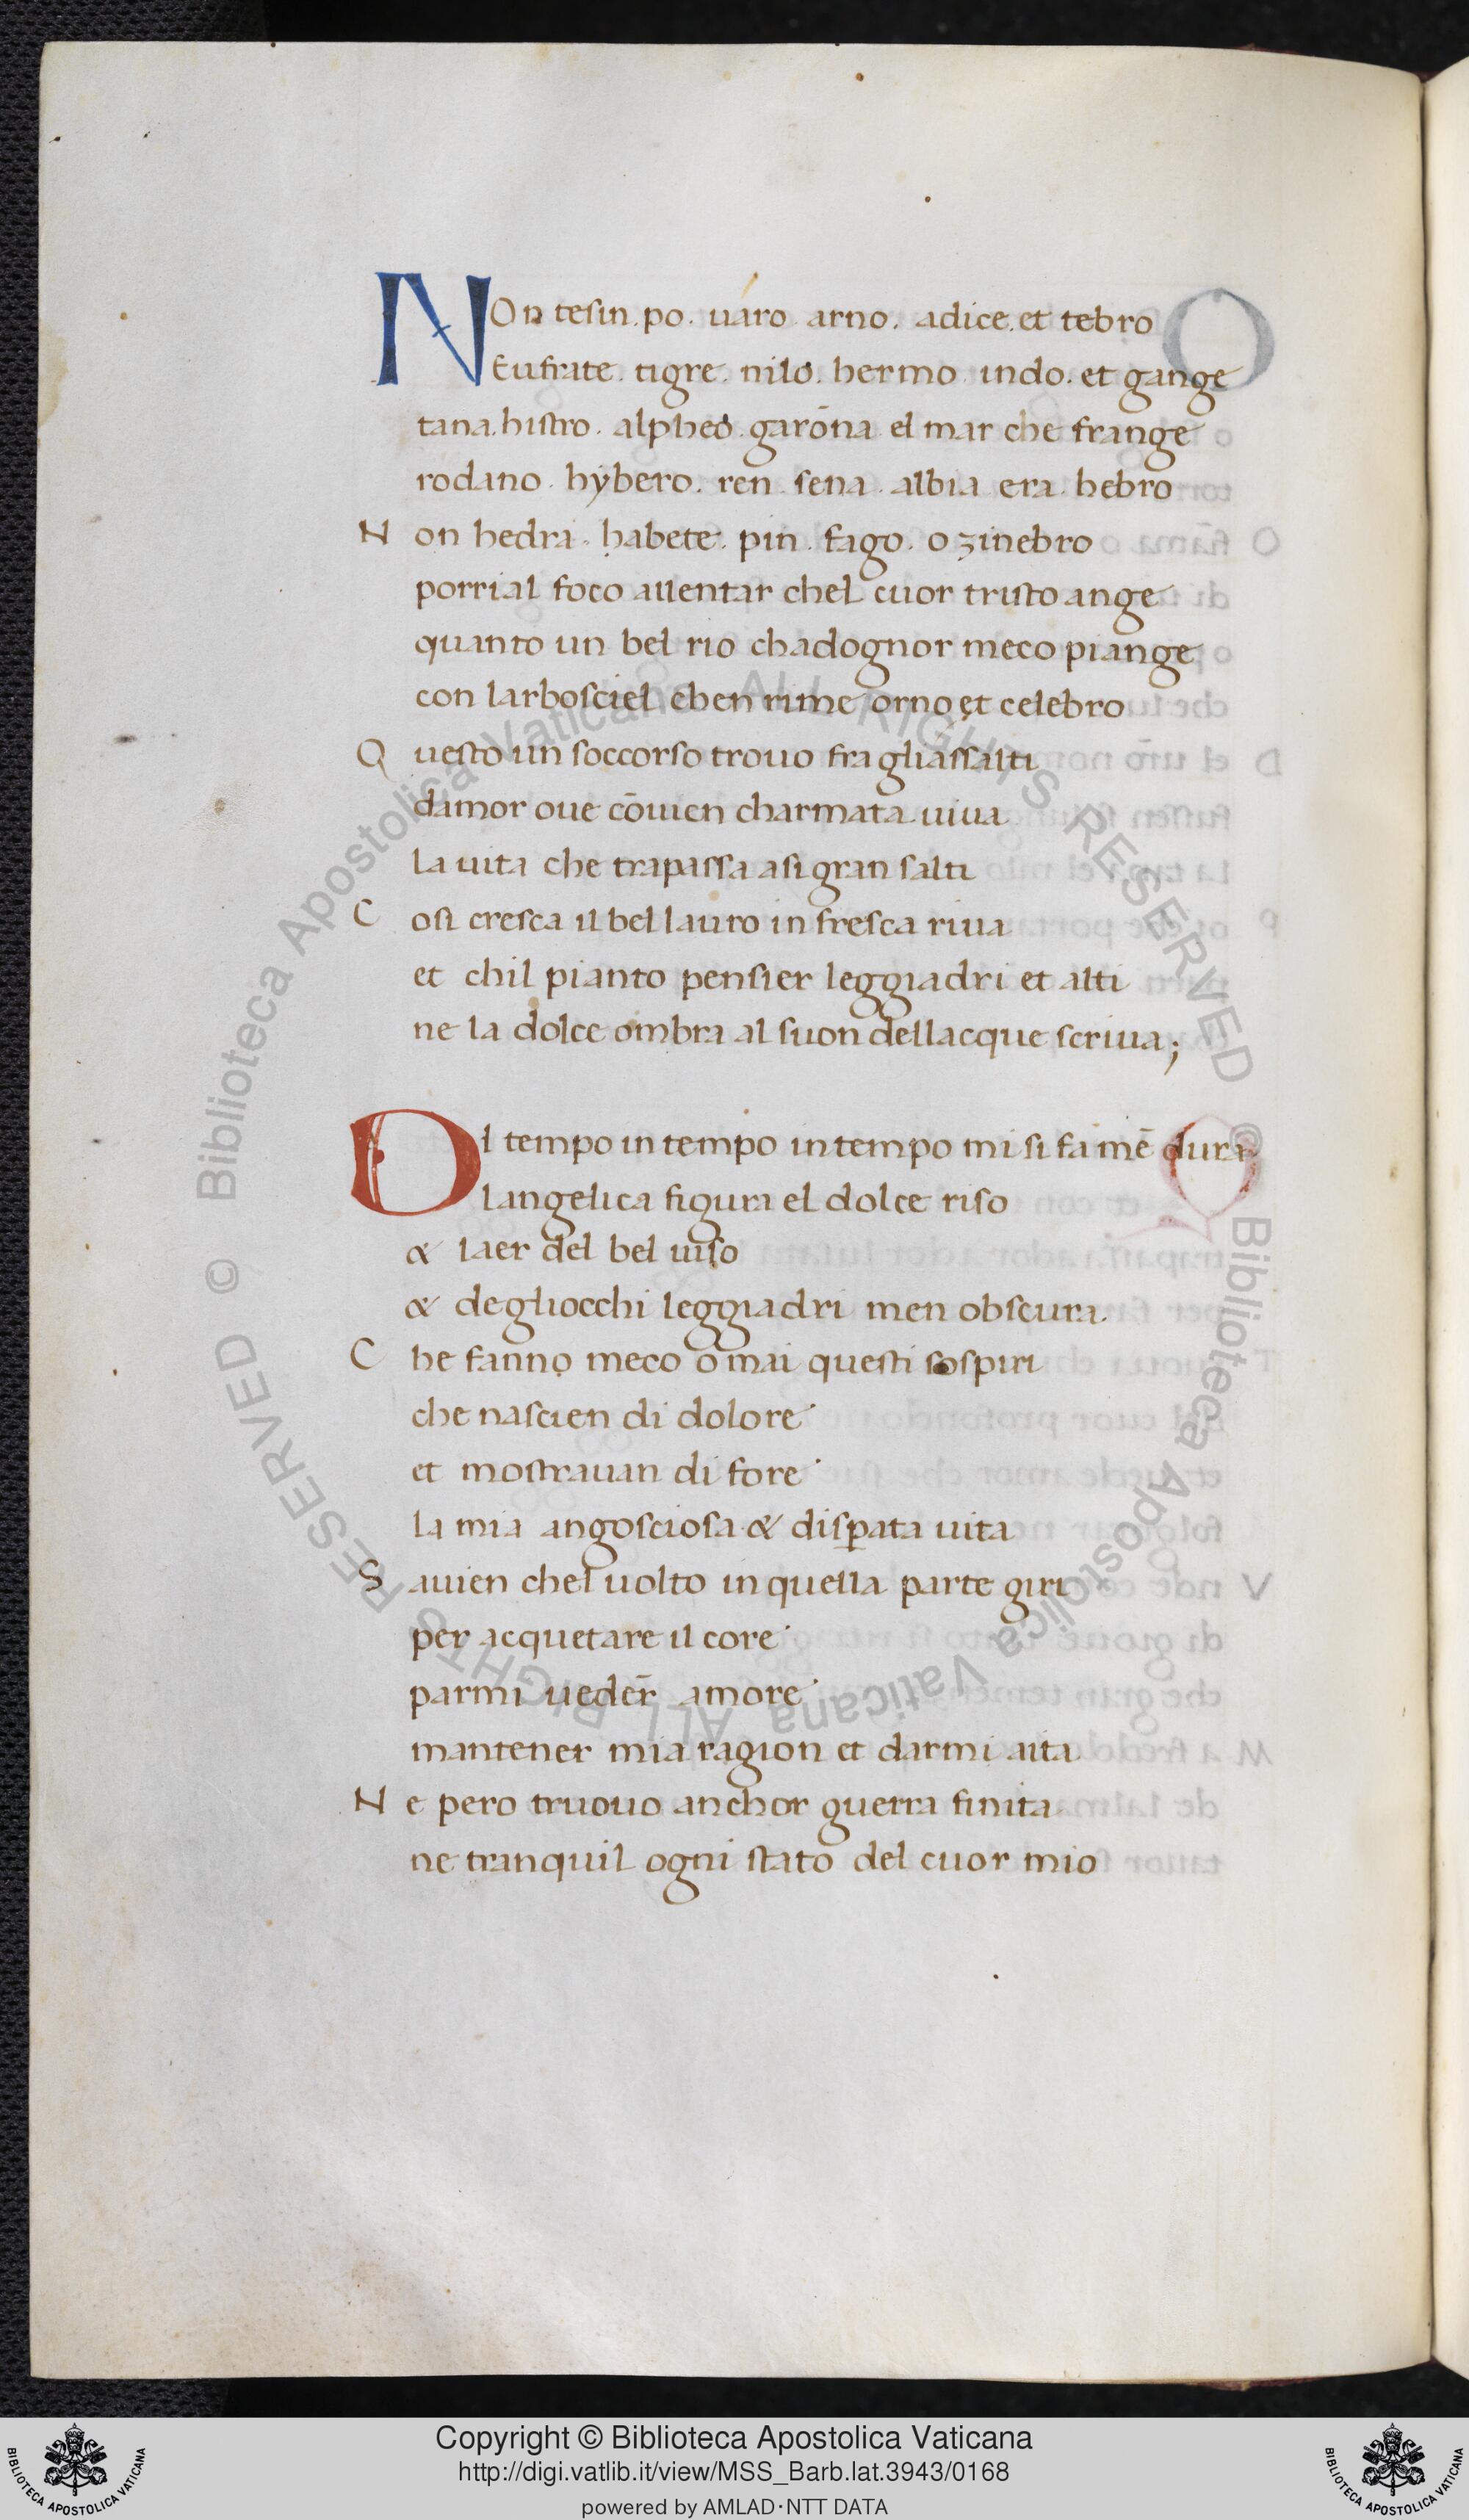 NOn tesin. po. uaro. arno. adice. et tebro
Eufrate. tigre. nilo. hermo. indo. et gange
tana. histro. alpheo. garōna. el mar che frange
rodano. hybero. ren. sena. albia. era. hebro
N on hedra. habete. pin. fago. o zinebro
porrial foco allentar chel cuor tristo ange
quanto un bel rio chadognor meco piange
con larbosciel chen rime orno et celebro
Q uesto un soccorso trouo fra gliassalti
damor oue cōuien charmata uiua
la uita che trapassa a si gran salti
C osi cresca il bel lauro in fresca riua
et chil pianto pensier leggiadri et alti
ne la dolce ombra al suon dellacque scriua;
DI tempo in tempo in tempo mi si fa mē dura
langelica figura el dolce riso
& laer del bel uiso
& degliocchi leggiadri men obscura.
C he fanno meco o mai questi sospiri
che nascien di dolore
et mostrauan di fore
la mia angosciosa & disꝑata uita
S auien chel uolto in quella parte giri
per acquetare il core
parmi uedēr amore
mantener mia ragion et darmi aita
N e pero truouo anchor guerra finita
ne tranquil ogni stato del cuor mio
© Biblioteca Apostolica Vaticana ALL RIGHTS RESERVED © Biblioteca Apostolica Vaticana ALL RIGHTS RESERVED
Copyright © Biblioteca Apostolica Vaticana
http://digi.vatlib.it/view/MSS_Barb.lat.3943/0168
powered by AMLAD·NTT DATA
BIBLIOTECA APOSTOLICA VATICANA
BIBLIOTECA APOSTOLICA VATICANA